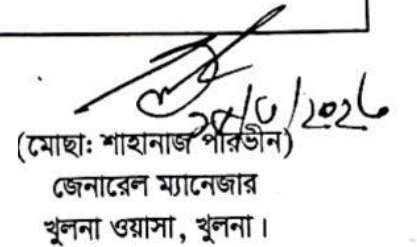 (মোছা: শাহানাজ পারভীন)
জেনারেল ম্যানেজার
খুলনা ওয়াসা, খুলনা।